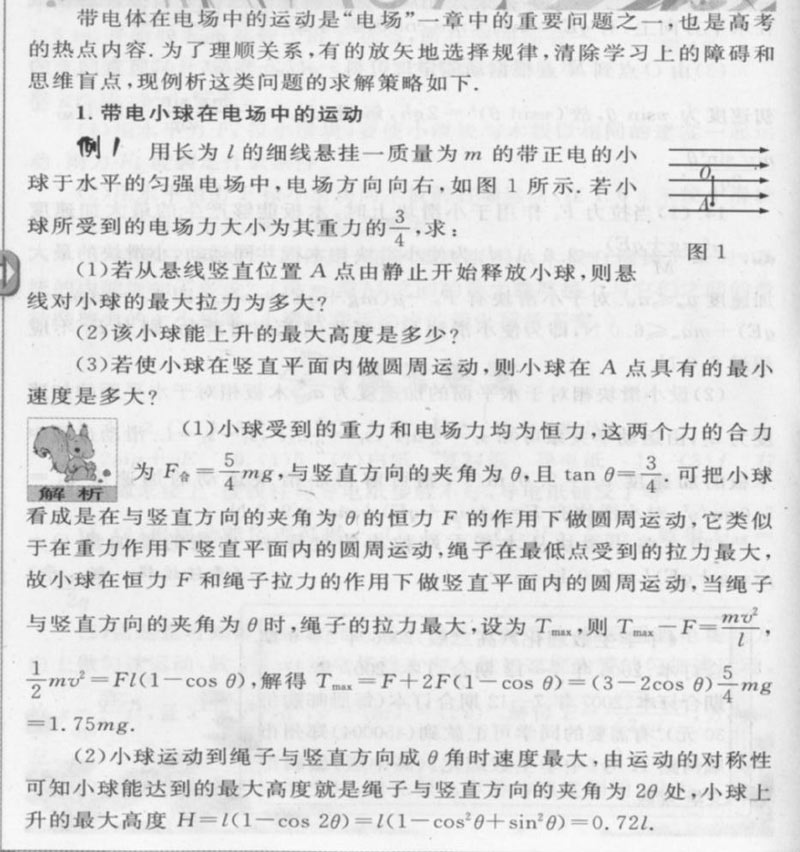 带电体在电场中的运动是“电场”一章中的重要问题之一,也是高考
的热点内容.为了理顺关系,有的放矢地选择规律,清除学习上的障碍和
思维盲点,现例析这类问题的求解策略如下.
1.带电小球在电场中的运动
例1 用长为 l 的细线悬挂一质量为 m 的带正电的小
球于水平的匀强电场中,电场方向向右,如图 1 所示.若小
球所受到的电场力大小为其重力的3/4,求:
O
A
图 1
(1)若从悬线竖直位置 A 点由静止开始释放小球,则悬
线对小球的最大拉力为多大?
(2)该小球能上升的最大高度是多少?
(3)若使小球在竖直平面内做圆周运动,则小球在 A 点具有的最小
速度是多大?
解 析
(1)小球受到的重力和电场力均为恒力,这两个力的合力
为 F合=5/4mg,与竖直方向的夹角为 θ,且 tan θ=3/4.可把小球
看成是在与竖直方向的夹角为 θ 的恒力 F 的作用下做圆周运动,它类似
于在重力作用下竖直平面内的圆周运动,绳子在最低点受到的拉力最大,
故小球在恒力 F 和绳子拉力的作用下做竖直平面内的圆周运动,当绳子
与竖直方向的夹角为 θ 时,绳子的拉力最大,设为 Tmax,则 Tmax-F=mv²/l,
1/2mv²=Fl(1-cos θ),解得 Tmax=F+2F(1-cos θ)=(3-2cos θ)5/4mg
=1.75mg.
(2)小球运动到绳子与竖直方向成 θ 角时速度最大,由运动的对称性
可知小球能达到的最大高度就是绳子与竖直方向的夹角为 2θ 处,小球上
升的最大高度 H=l(1-cos 2θ)=l(1-cos²θ+sin²θ)=0.72l.